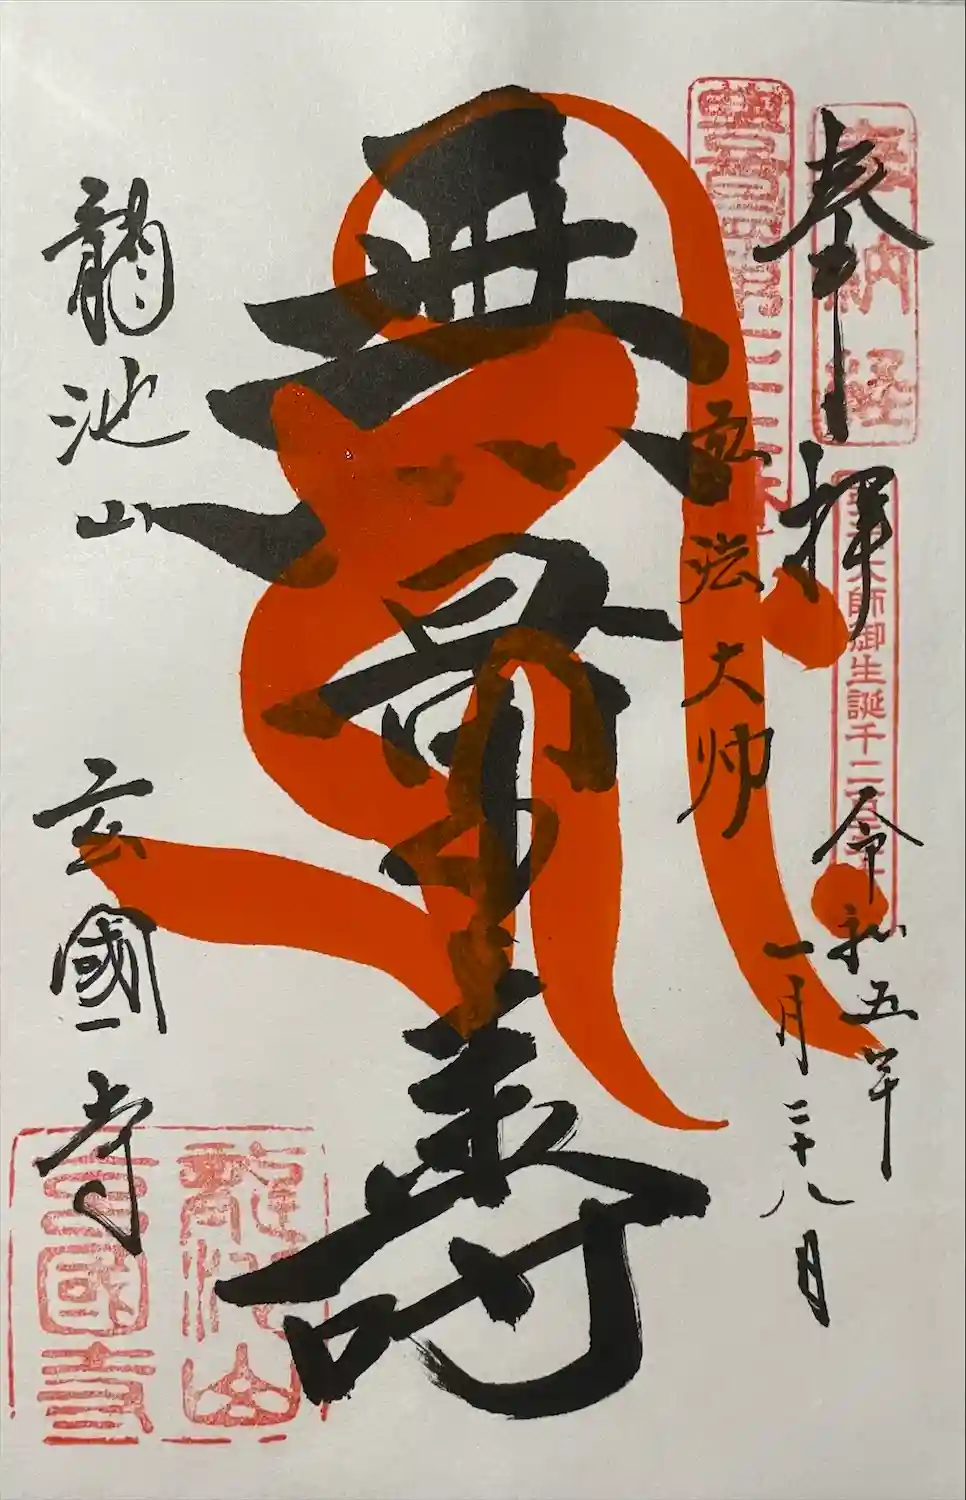 奉拝
奉納経
大師御生誕千二百五十年
令和五年
一月二十八日
弘法大師
無量寿
龍池山
玄國寺
龍池山
玄國寺